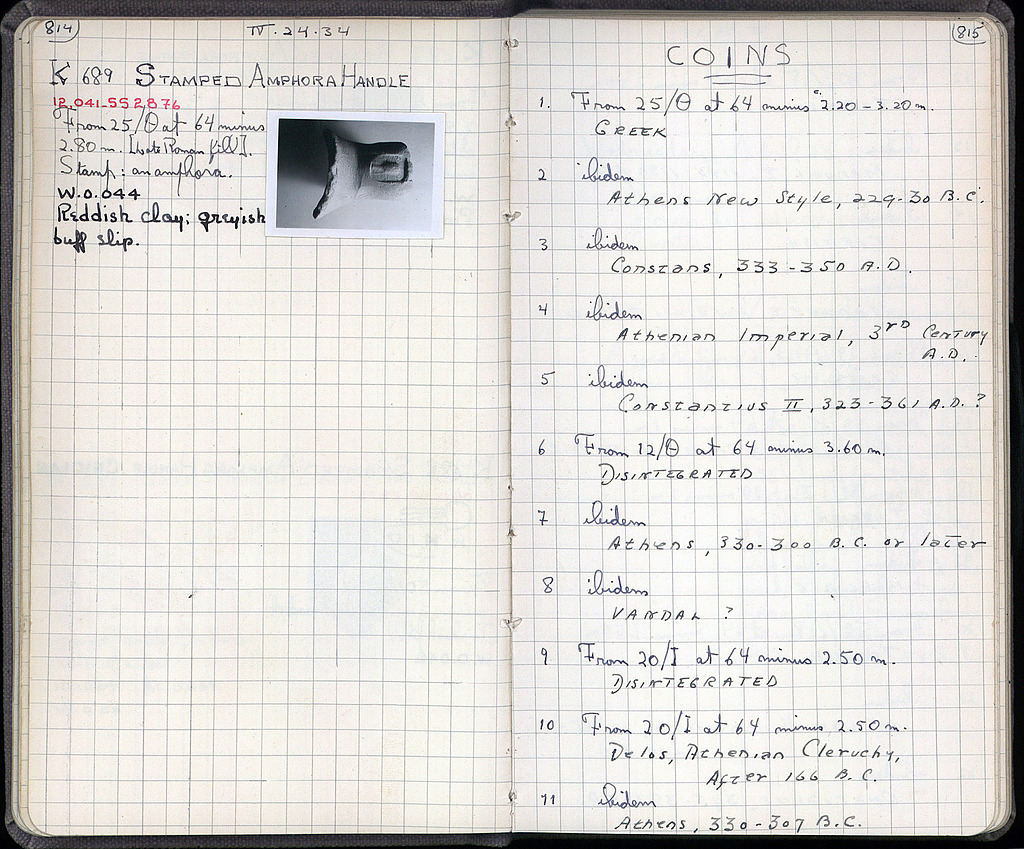 814
IV.24.34
K 689 STAMPED AMPHORA HANDLE
12.041-SS 2,876
From 25/Θ at 64 minus
2.80 m. [Late Roman fill].
Stamp: an amphora.
W.O.044
Reddish clay; greyish
buff slip.
815
COINS
1. From 25/Θ at 64 minus 2.20-3.20 m.
GREEK
2 ibidem
Athens New Style, 229-30 B.C.
3 ibidem
Constans, 333-350 A.D.
4 ibidem
Athenian Imperial, 3rd Century
A.D.
5 ibidem
Constantius II, 323-361 A.D. ?
6 From 12/Θ at 64 minus 3.60 m.
DISINTEGRATED
7 ibidem
Athens, 330-300 B.C. or later
8 ibidem
VANDAL ?
9 From 20/I at 64 minus 2.50 m.
DISINTEGRATED
10 From 20/I at 64 minus 2.50 m.
Delos, Athenian Cleruchy,
After 166 B.C.
11 ibidem
Athens, 330-307 B.C.